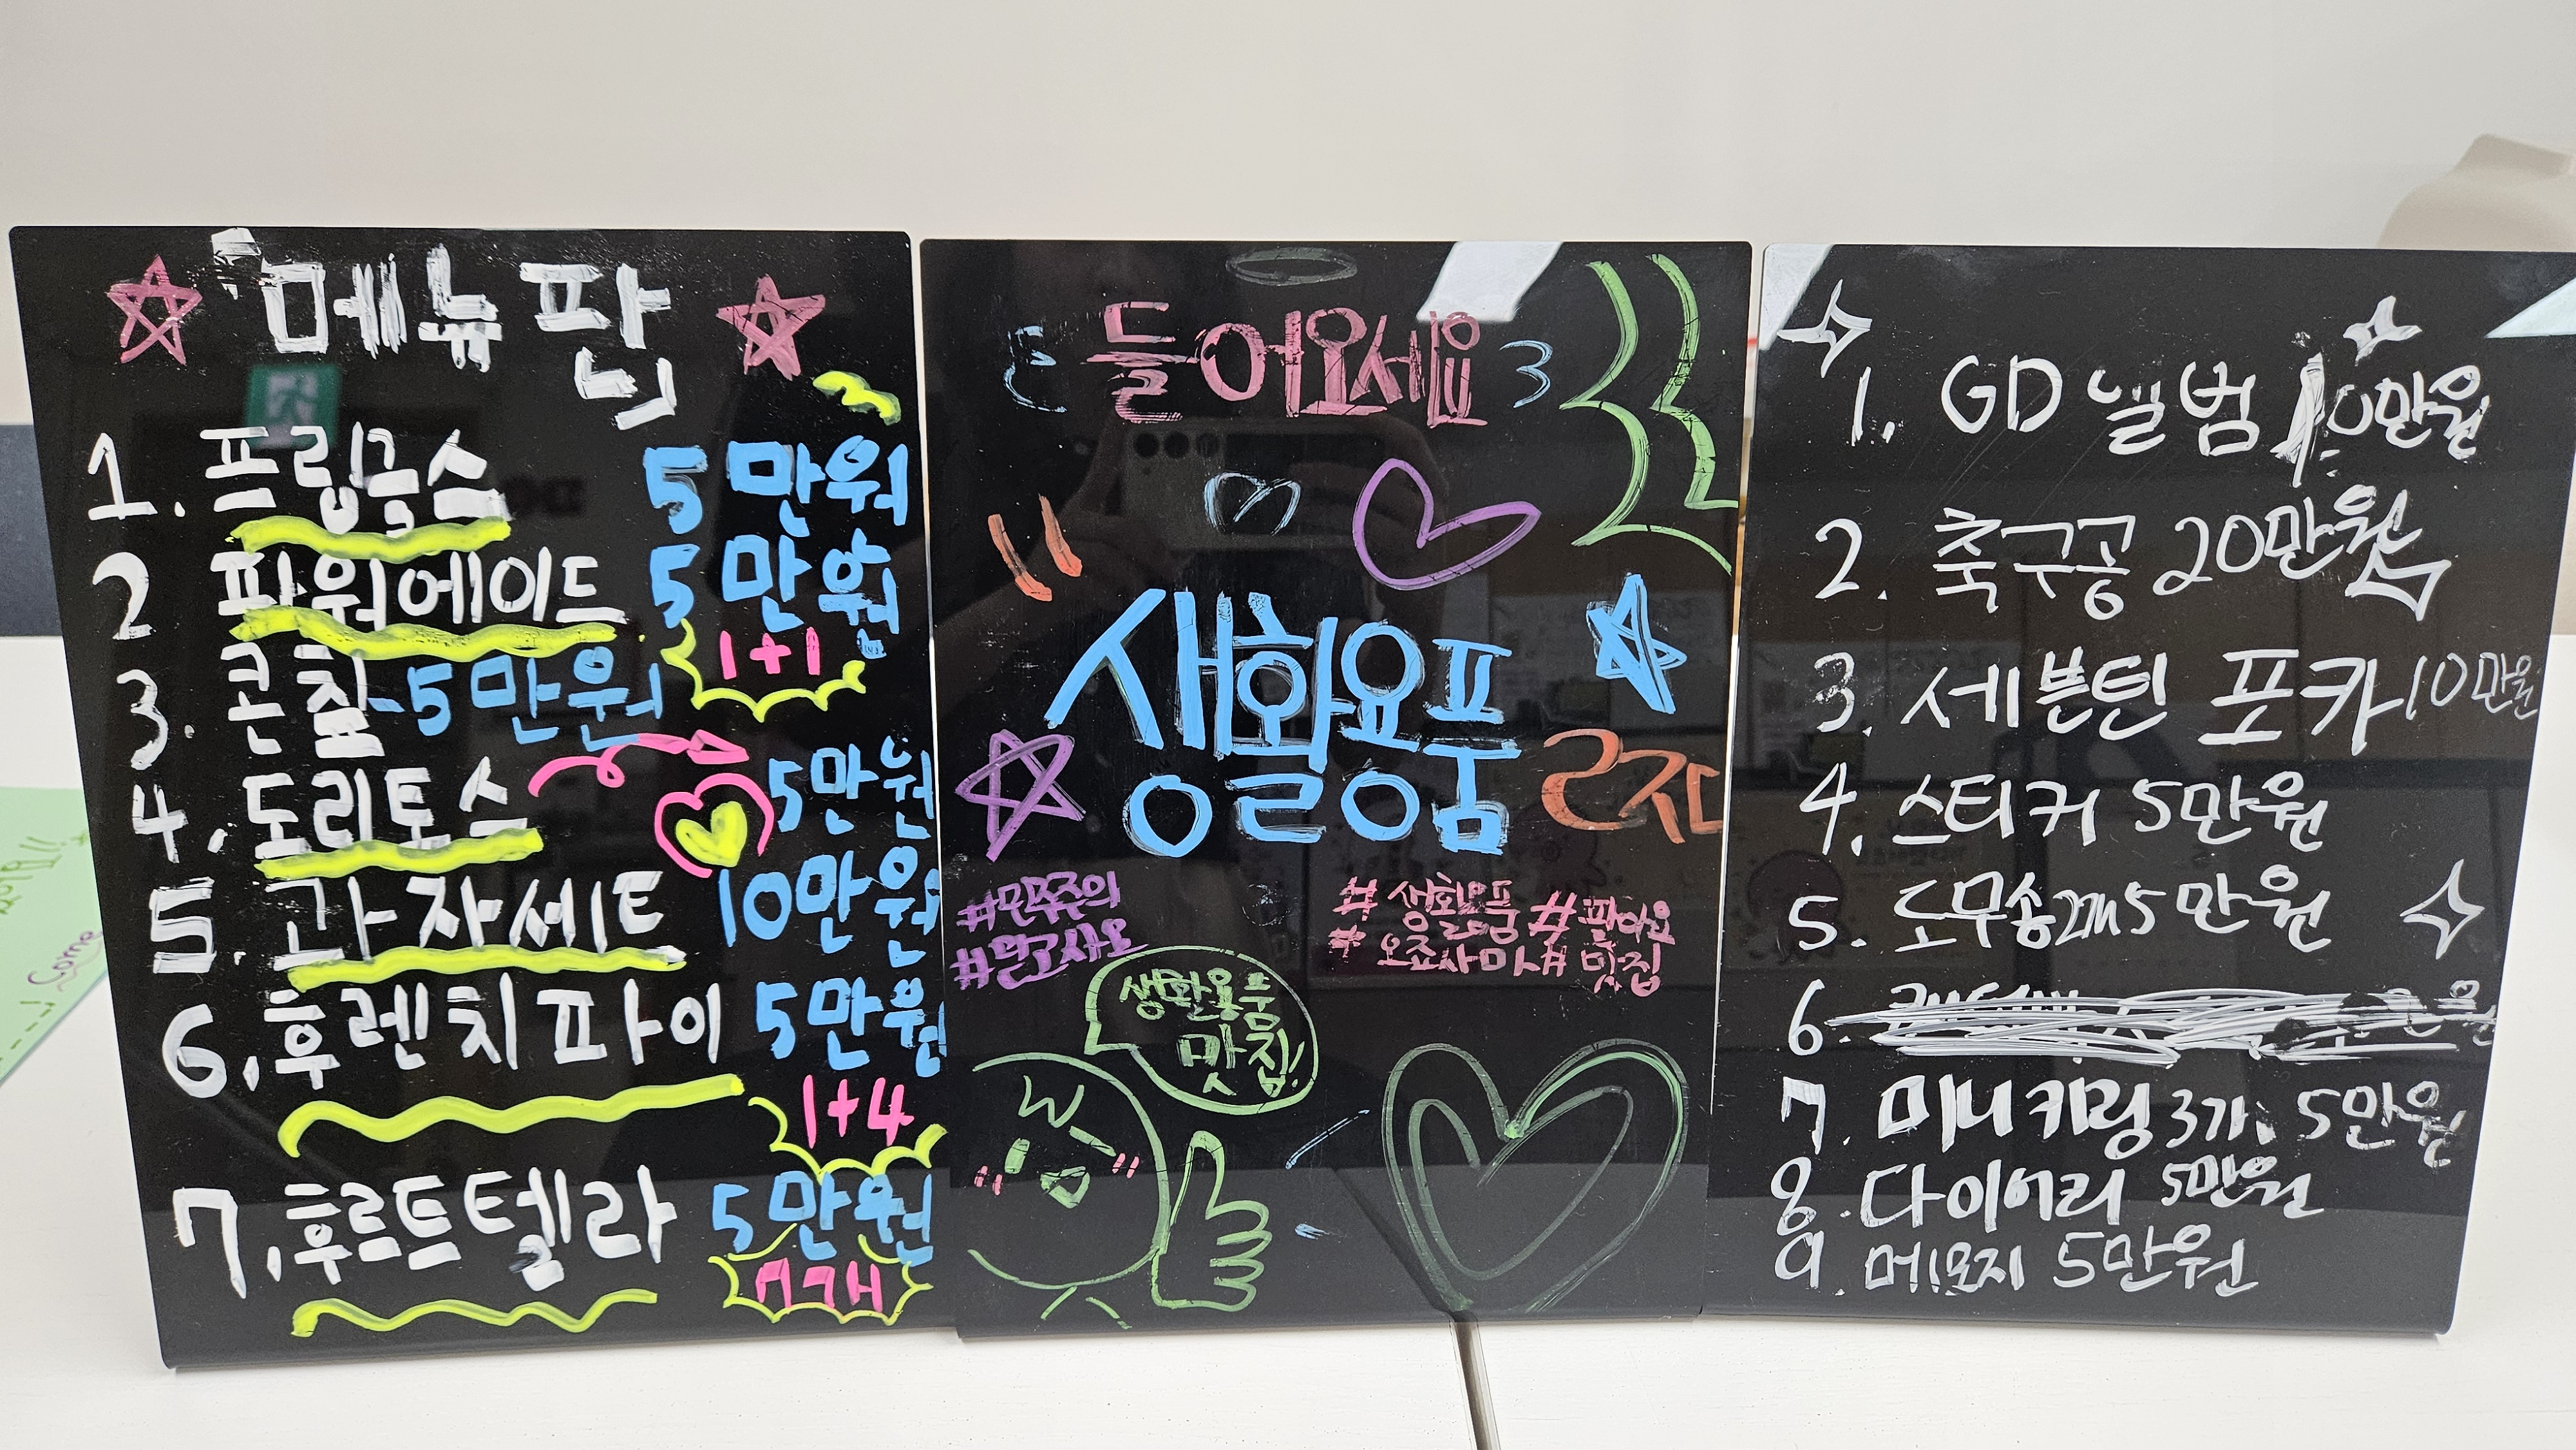 메뉴판
1. 프링글스 5만원
2 파워에이드 5만원
1+1
3. 콘칩-5만원
4. 도리토스 5만원
5. 과자세트 10만원
6. 후렌치파이 5만원
1+4
7. 후르트텔라 5만원
7개
들어요세요
생활용품
#민주주의
#믿고사요
#생활용품 #팔아요
#맛집
생활용품
맛집!
1. GD 앨범 10만원
2. 축구공 20만원
3. 세븐틴 포카 10만원
4. 스티커 5만원
5. 도무송 5만원
6.
7. 미니키링 3개 5만원
8. 다이어리 5만원
9. 메모지 5만원
Come